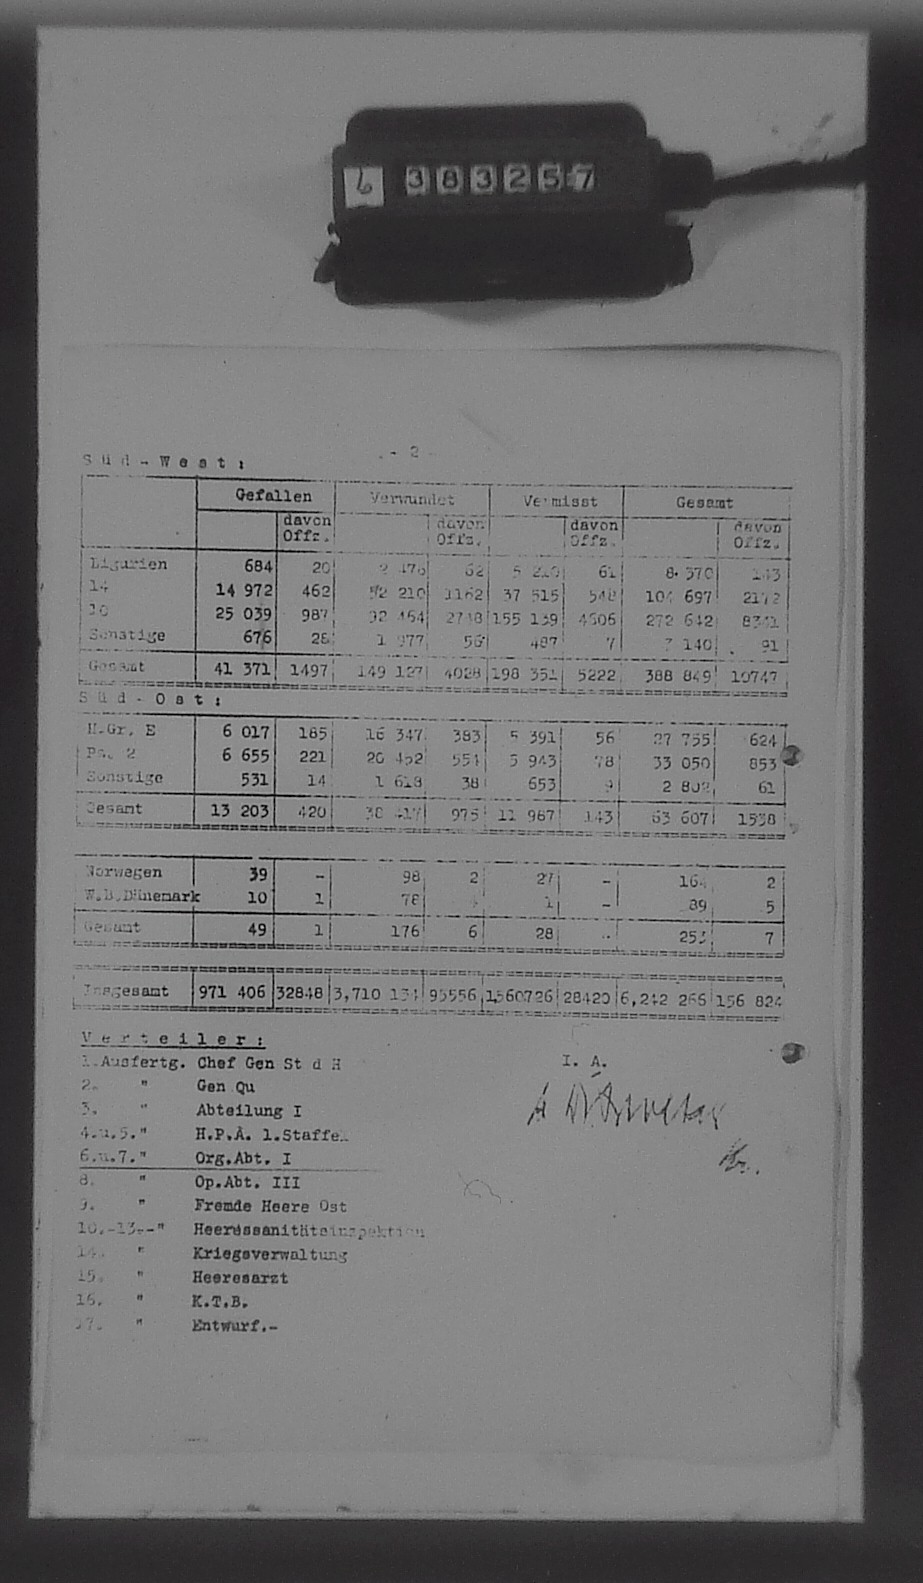 6 383257
- 2
Süd-West:
Gefallen Verwundet Vermisst Gesamt
davon Offz. davon Offz. davon Offz. davon Offz.
Ligurien 684 20 62 61 8 370 143
14 14 972 462 1162 37 515 548 697
10 25 039 987 155 139 272 642
Sonstige 676 28 56 487 7 140 91
Gesamt 41 371 1497 149 127 4028 198 351 5222 388 849 10747
Süd-Ost:
H.Gr. E 6 017 185 16 347 383 5 391 56 27 755 624
Pz. 2 6 655 221 20 452 554 5 943 78 33 050 853
Sonstige 531 14 1 618 38 653 9 2 802 61
Gesamt 13 203 420 975 11 987 143 63 607 1538
Norwegen 39 - 98 2 27 - 164 2
W.B.Dänemark 10 1 78 1 - 89 5
Gesamt 49 1 176 6 28 253 7
Insgesamt 971 406 32848 3,710 134 95556 1560726 28420 6,242 266 156 824
Verteiler:
1.Ausfertg. Chef Gen St d H
I. A.
2. " Gen Qu
3. " Abteilung I
4.u.5." H.P.A. 1.Staffel
6.u.7." Org.Abt. I
8. " Op.Abt. III
9. " Fremde Heere Ost
10.-13.-" Heeressanitätsinspektion
14. " Kriegsverwaltung
15. " Heeresarzt
16. " K.T.B.
17. " Entwurf.-